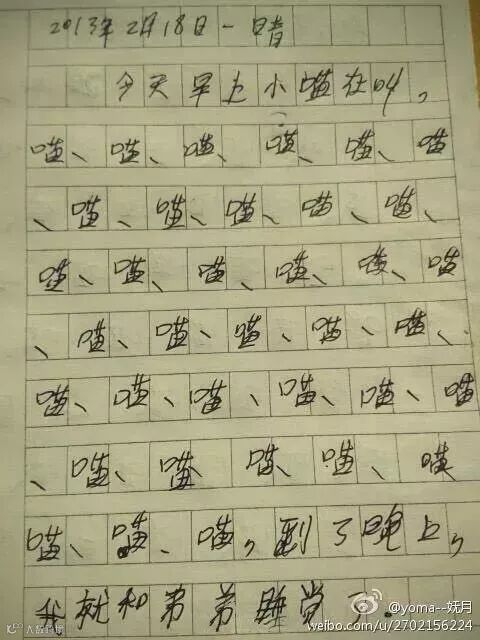 2013年2月18日一晴
今天早上小喵在叫,
喵、喵、喵、喵、喵、喵
、喵、喵、喵、喵、喵、
喵、喵、喵、喵、喵、喵
、喵、喵、喵、喵、喵、
喵、喵、喵、喵、喵、喵
、喵、喵 喵、喵、喵
喵、喵、喵,到了晚上,
我就和弟弟睡觉了.
@yoma--妩月
weibo.com/u/2702156224